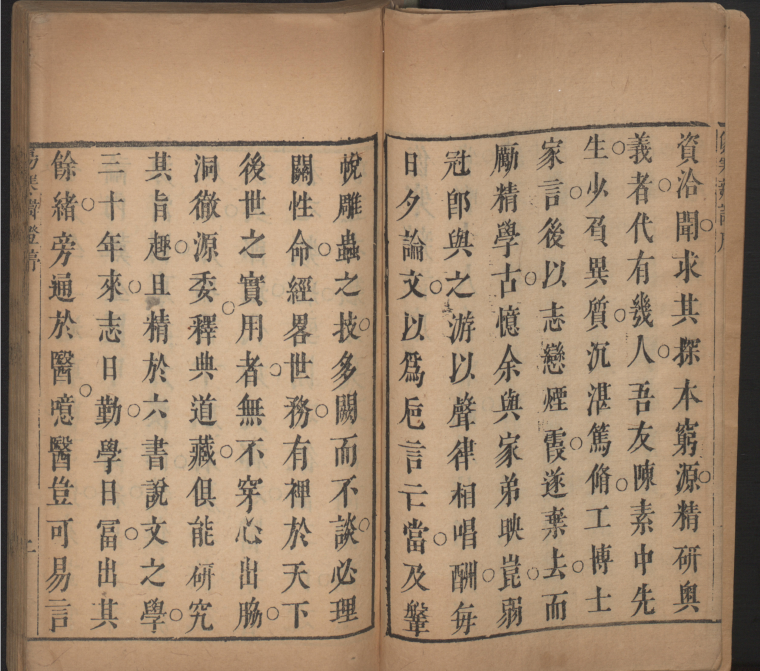 資洽聞求其探本窮源精研奧
義者代有幾人吾友陳素中先
生少負異質沉湛篤脩工博士
家言後以志戀煙霞遂棄去而
勵精學古憶余與家弟映崑弱
冠卽與之游以聲律相唱酬每
日夕論文以爲巵言亡當及鞶
帨雕蟲之技多闕而不談必理
關性命經畧世務有裨於天下
後世之實用者無不穿心出脇
洞徹源委釋典道藏俱能研究
其旨趣且精於六書說文之學
三十年來志日勤學日富出其
餘緒旁通於醫噫醫豈可易言